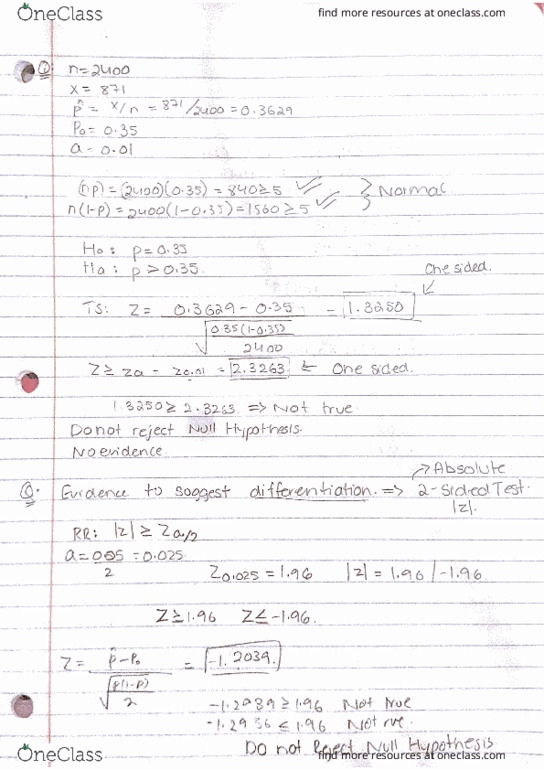 OneClass
find more resources at oneclass.com
Q: n=2400
x = 871
p̂ = x/n = 871/2400 = 0.3629
Po = 0.35
a = 0.01
(np) = (2400)(0.35) = 840 ≥ 5 ✓
n(1-p) = 2400(1-0.35) = 1560 ≥ 5 ✓
} Normal
Ho: p = 0.35
Ha: p > 0.35
One sided.
TS: Z = 0.3629 - 0.35 = 1.3250
√ 0.35(1-0.35)
2400
Z ≥ za = z0.01 = 2.3263 ← One sided.
1.3250 ≥ 2.3263 => Not true
Do not reject Null Hypothesis.
No evidence
→ Absolute
Q. Evidence to suggest differentiation. => 2-sided Test.
|z|.
RR: |z| ≥ Za/2
a = 0.05 = 0.025
2
Z0.025 = 1.96 |z| = 1.96 / -1.96
Z ≥ 1.96 Z ≤ -1.96.
Z = p̂ - Po = -1.2039.
√ p(1-p)
2
-1.2989 ≥ 1.96 Not true
-1.2936 ≤ 1.96 Not rue.
Do not Reject Null Hypothesis
OneClass
find more resources at oneclass.com